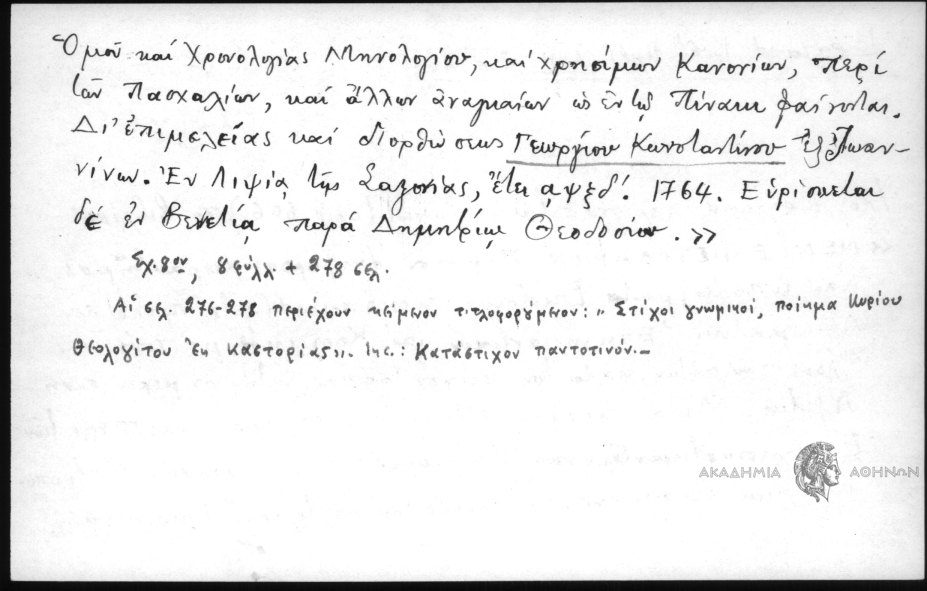 Ὁμοῦ καί Χρονολογίας Μηνολογίου, καί χρησίμων Κανονίων, περί
τῶν Πασχαλίων, καί ἄλλων ἀναγκαίων ὡς ἐν τῷ Πίνακι φαίνονται.
Δι' ἐπιμελείας καί διορθώσεως Γεωργίου Κωνσταντίνου ἐξ Ἰωαν-
νίνων. Ἐν Λιψίᾳ τῆς Σαξονίας, ἔτει αψξδ'. 1764. Εὑρίσκεται
δέ ἐν Βενετίᾳ παρά Δημητρίῳ Θεοδοσίου. »
Σχ. 8ον, 8 φύλλ. + 278 σελ.
Αἱ σελ. 276-278 περιέχουν κείμενον τιτλοφορύμενον: „ Στίχοι γνωμικοί, ποίημα Κυρίου
Θεολογίτου Ἐκ Καστορίας". Inc.: Κατάστιχον παντοτινόν.–
ΑΚΑΔΗΜΙΑ ΑΘΗΝΩΝ